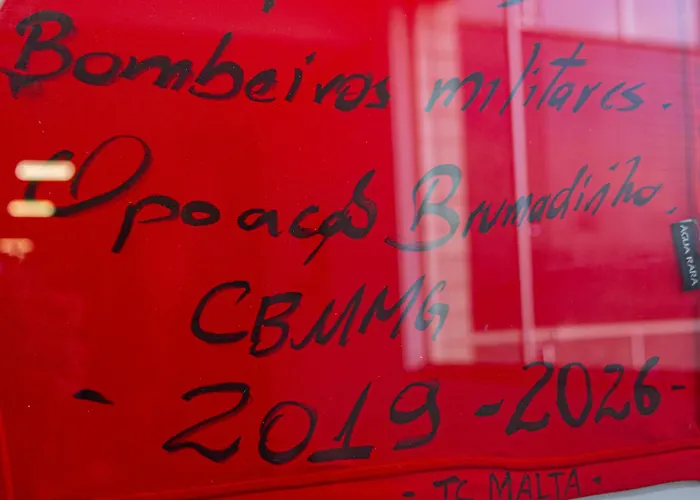 Bombeiros militares.
Opoação Brumadinho.
CBMMG
- 2019 - 2026 -
- TC MALTA -
ÁGUA RARA